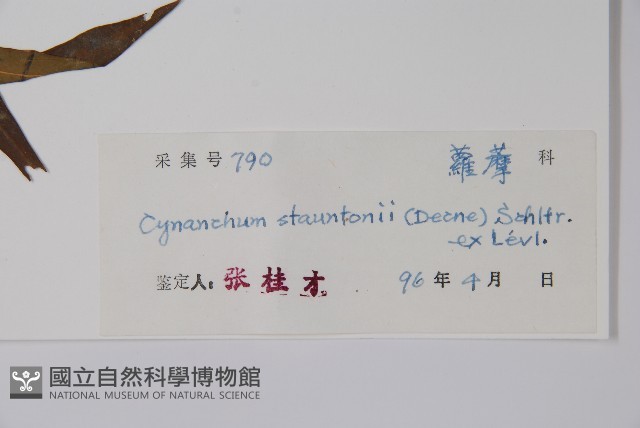 采集号 790 蘿藦 科
Cynanchum stauntonii (Decne) Schltr.
ex Lévl.
鉴定人: 张桂才 96 年 4 月 日
國立自然科學博物館
NATIONAL MUSEUM OF NATURAL SCIENCE